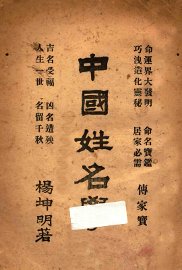 命運界大發明　命名寶鑑　傳家寶
巧洩造化靈秘　居家必需
中國姓名學
吉名受福　凶名遭殃
人生一世　名留千秋
楊坤明著